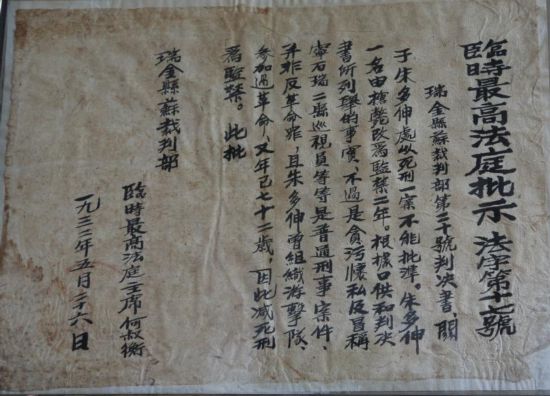 臨時最高法庭批示 法字第十七號
瑞金縣蘇裁判部第二十號判决書、關
于朱多伸處以死刑一案不能批準。朱多伸
一名由槍斃改爲監禁二年。根據口供和判决
書所列舉的事實、不過是貪污懷私及冒稱
寧石瑞二縣巡視員等等是普通刑事案件、
并非反革命罪、且朱多伸曾組織游擊隊、
參加過革命、又年已七十二歲、因此减死刑
爲監禁。 此批
瑞金縣蘇裁判部
臨時最高法庭主席何叔衡
一九三二年五月二十六日